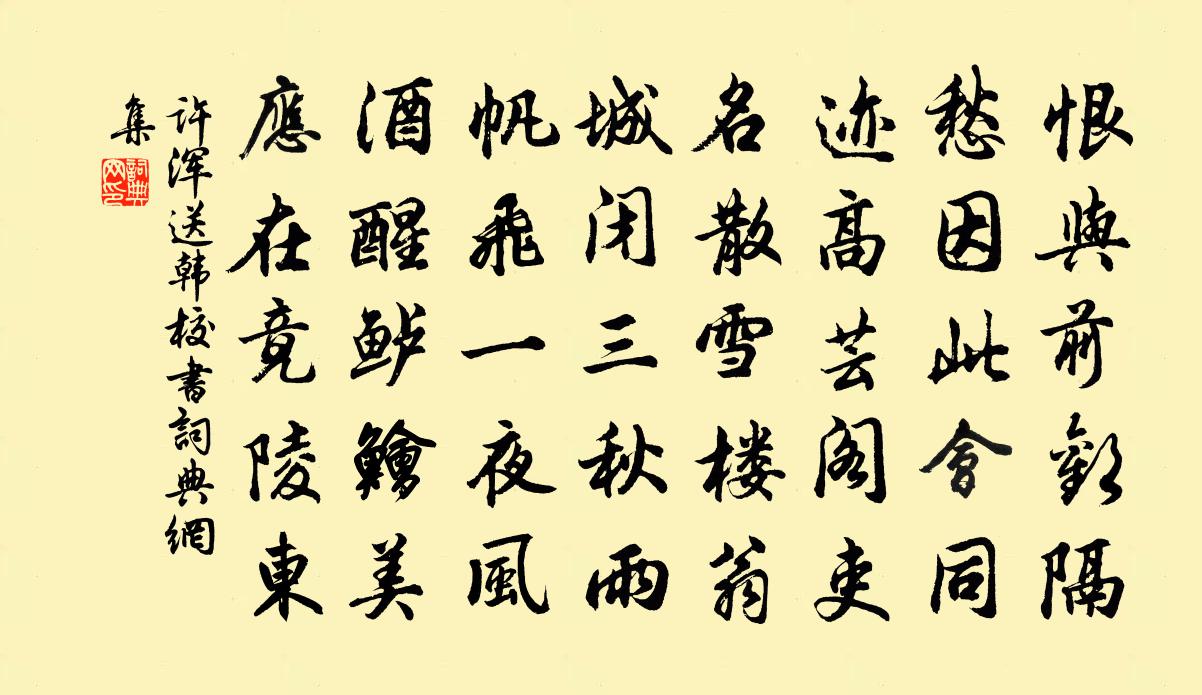 恨與前歡隔
愁因此會同
迹高芸閣吏
名散雪楼翁
城闭三秋雨
帆飛一夜風
酒醒鲈鱠美
應在竟陵東
许浑送韩校書詞典網
集
詞典
网印